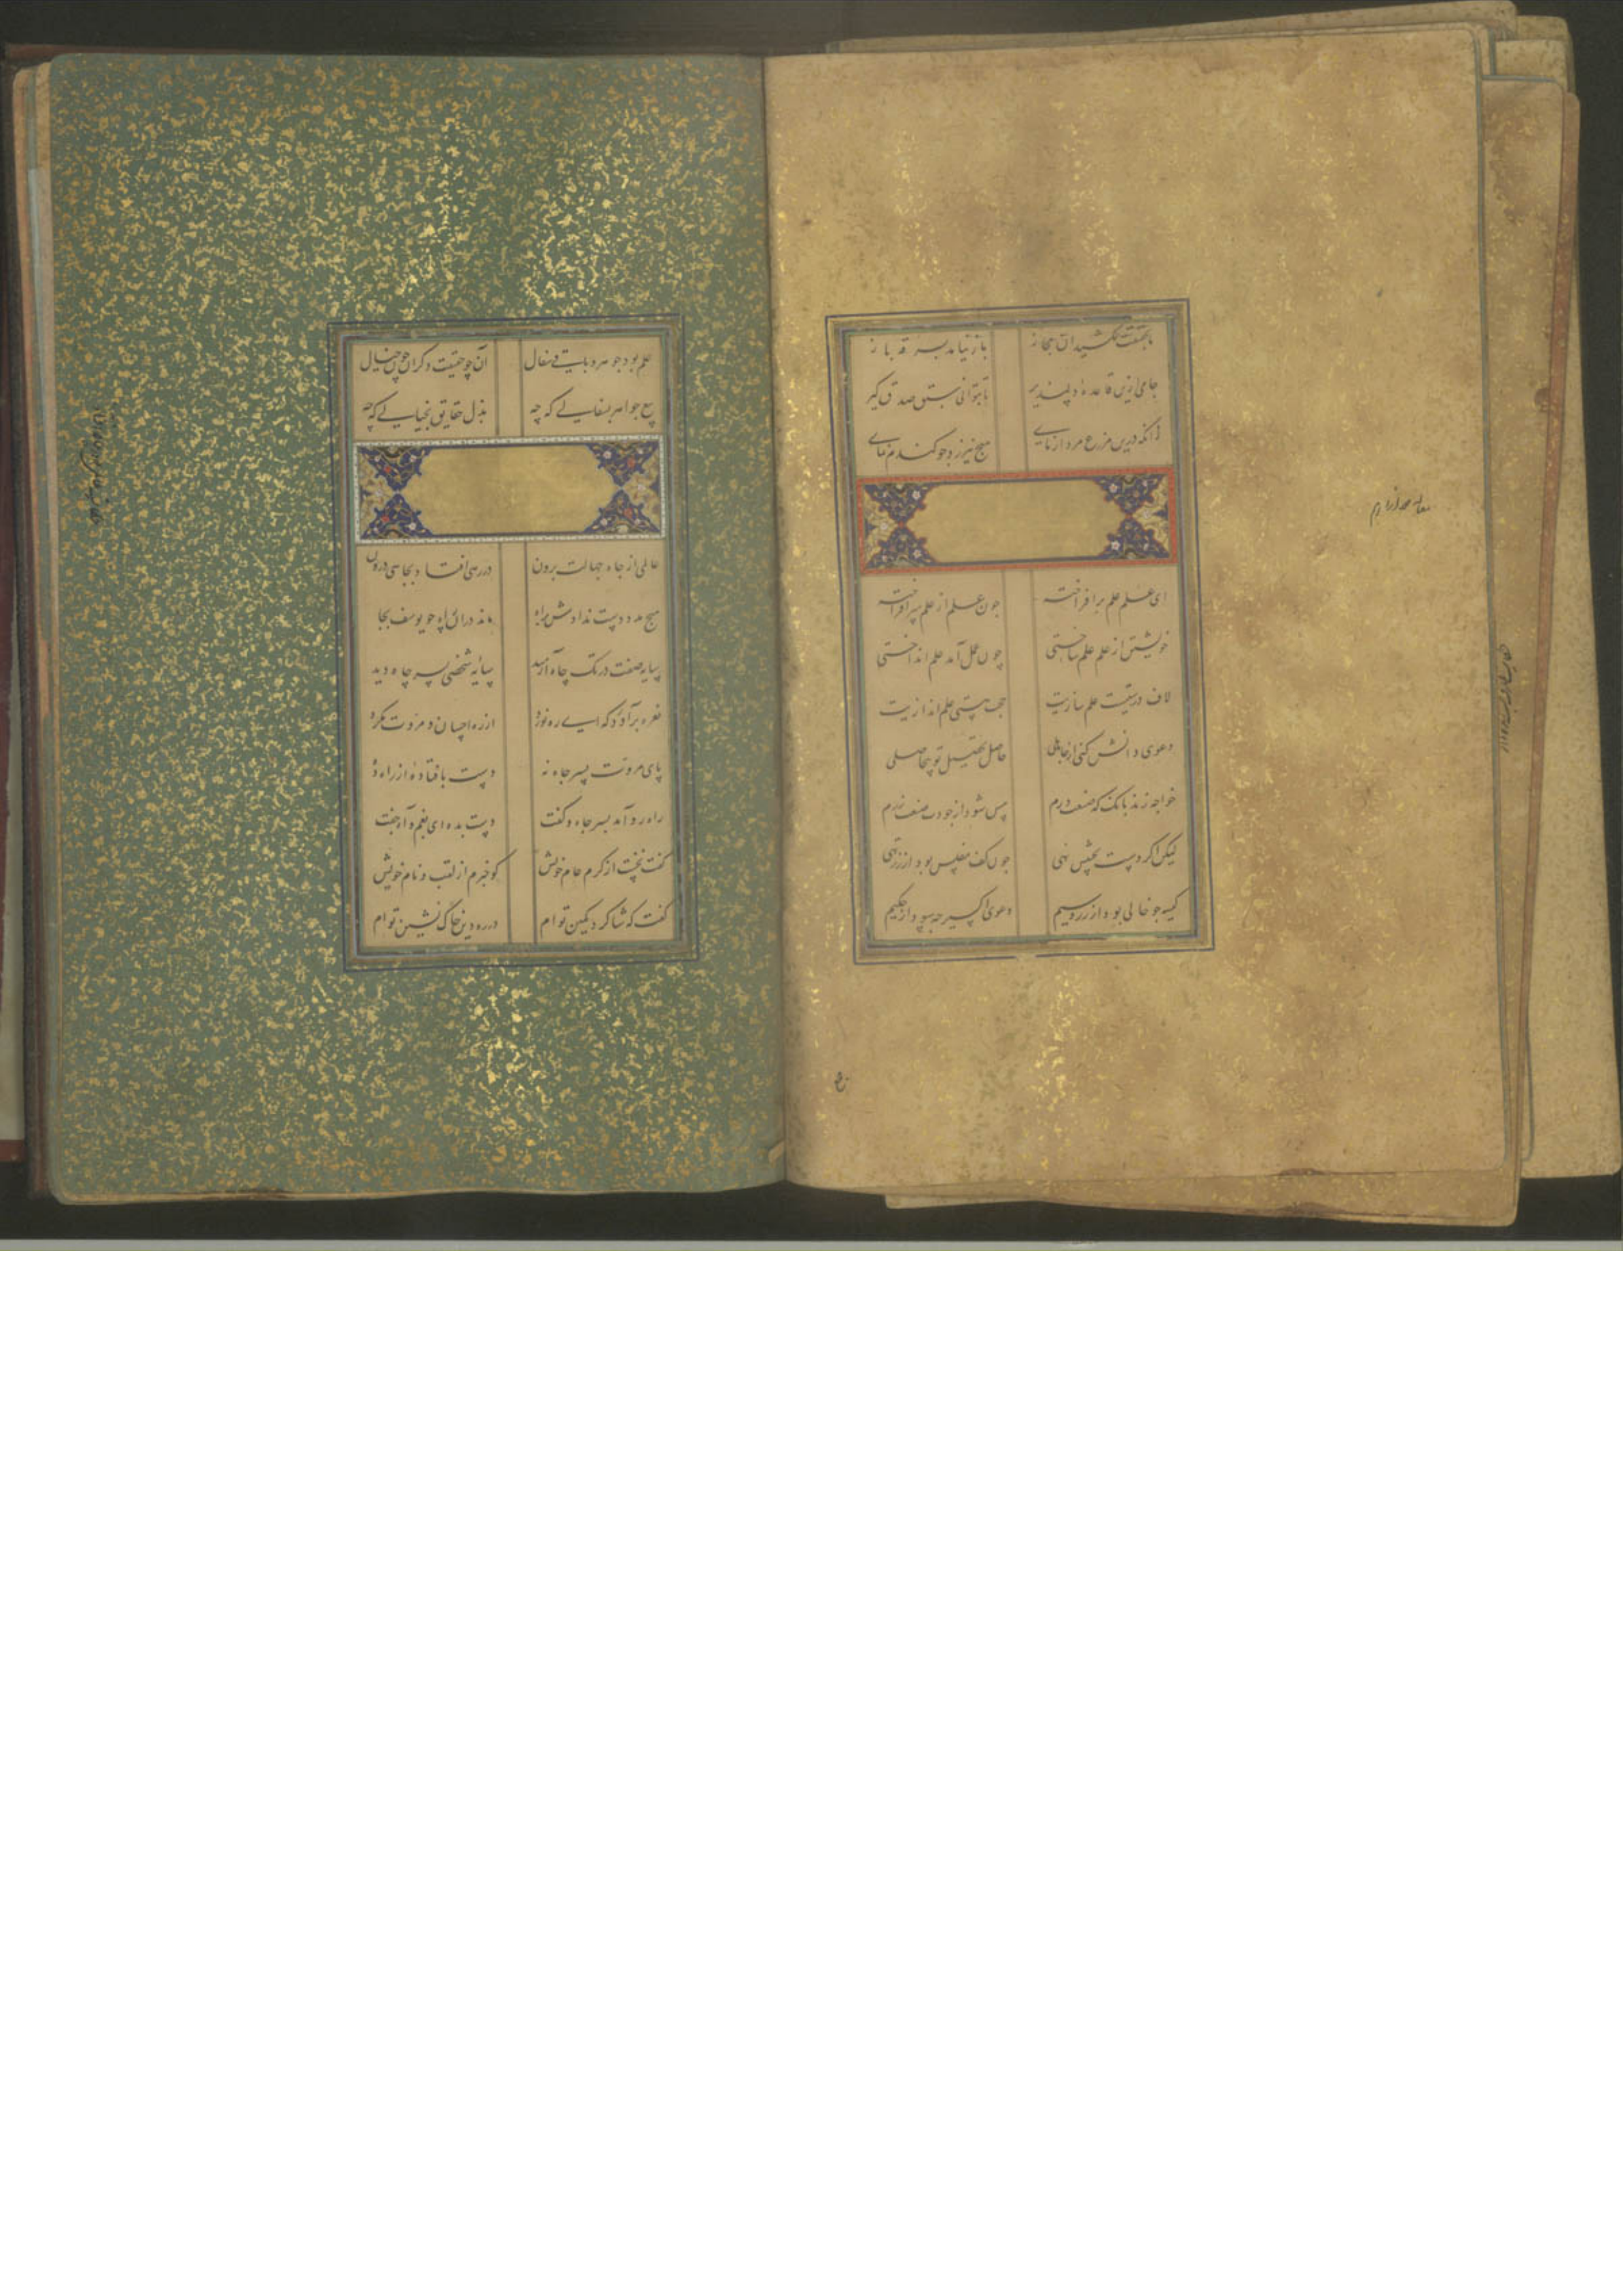 تا به حقیقت نکشید آن مجاز
باز نیامد بسر قه باز
جامی ازین قاعدهٔ دلپذیر
تا بتوانی سبق صدق گیر
زانکه درین مزرع مرد آزمای
هیچ نیرزد جو گندم نمای
ای علم علم برافراخته
چون علم از علم سر افراخته
خویشتن از علم علم ساختی
چون عمل آمد علم انداختی
لاف درستیست علم سازیت
حجت سستی علم اندازیت
دعوی دانش کنی از جاهلی
حاصل تحصیل تو بیحاصلی
خواجه زند بانک که صنعتورم
مس شود از جودت صنعت زرم
لیکن اکر دست بجیبش نهی
چون کف مفلس بود از زر تهی
کیسه جو خالی بود از زر و سیم
دعوی اکسیر چه سود از حکیم
علم بود جوهر و باقی سفال
آن چو حقیقت دکران چون خیال
بیع جواهر بسفالی که چه
بذل حقایق بخیالی که چه
عالمی از چاه جهالت برون
در رهی افتاد بچاهی درون
هیچ مدد دست ندادش ز راه
ماند در آن چاه چو یوسف بجا
سایه صفت در تک چاه آرمید
سایهٔ شخصی بسر چاه دید
نعره برآورد که ای ره نورد
از ره احسان و مروت مکرد
پای مروت بسر چاه نه
دست بافتادهٔ از راه ده
راهرو آمد بسر چاه و گفت
دست بده ای بغم و آه جفت
گفت نخست از کرم عام خویش
گو خبرم از لقب و نام خویش
گفت که شاکرد کمین توام
در ره دین خاک نشین توام